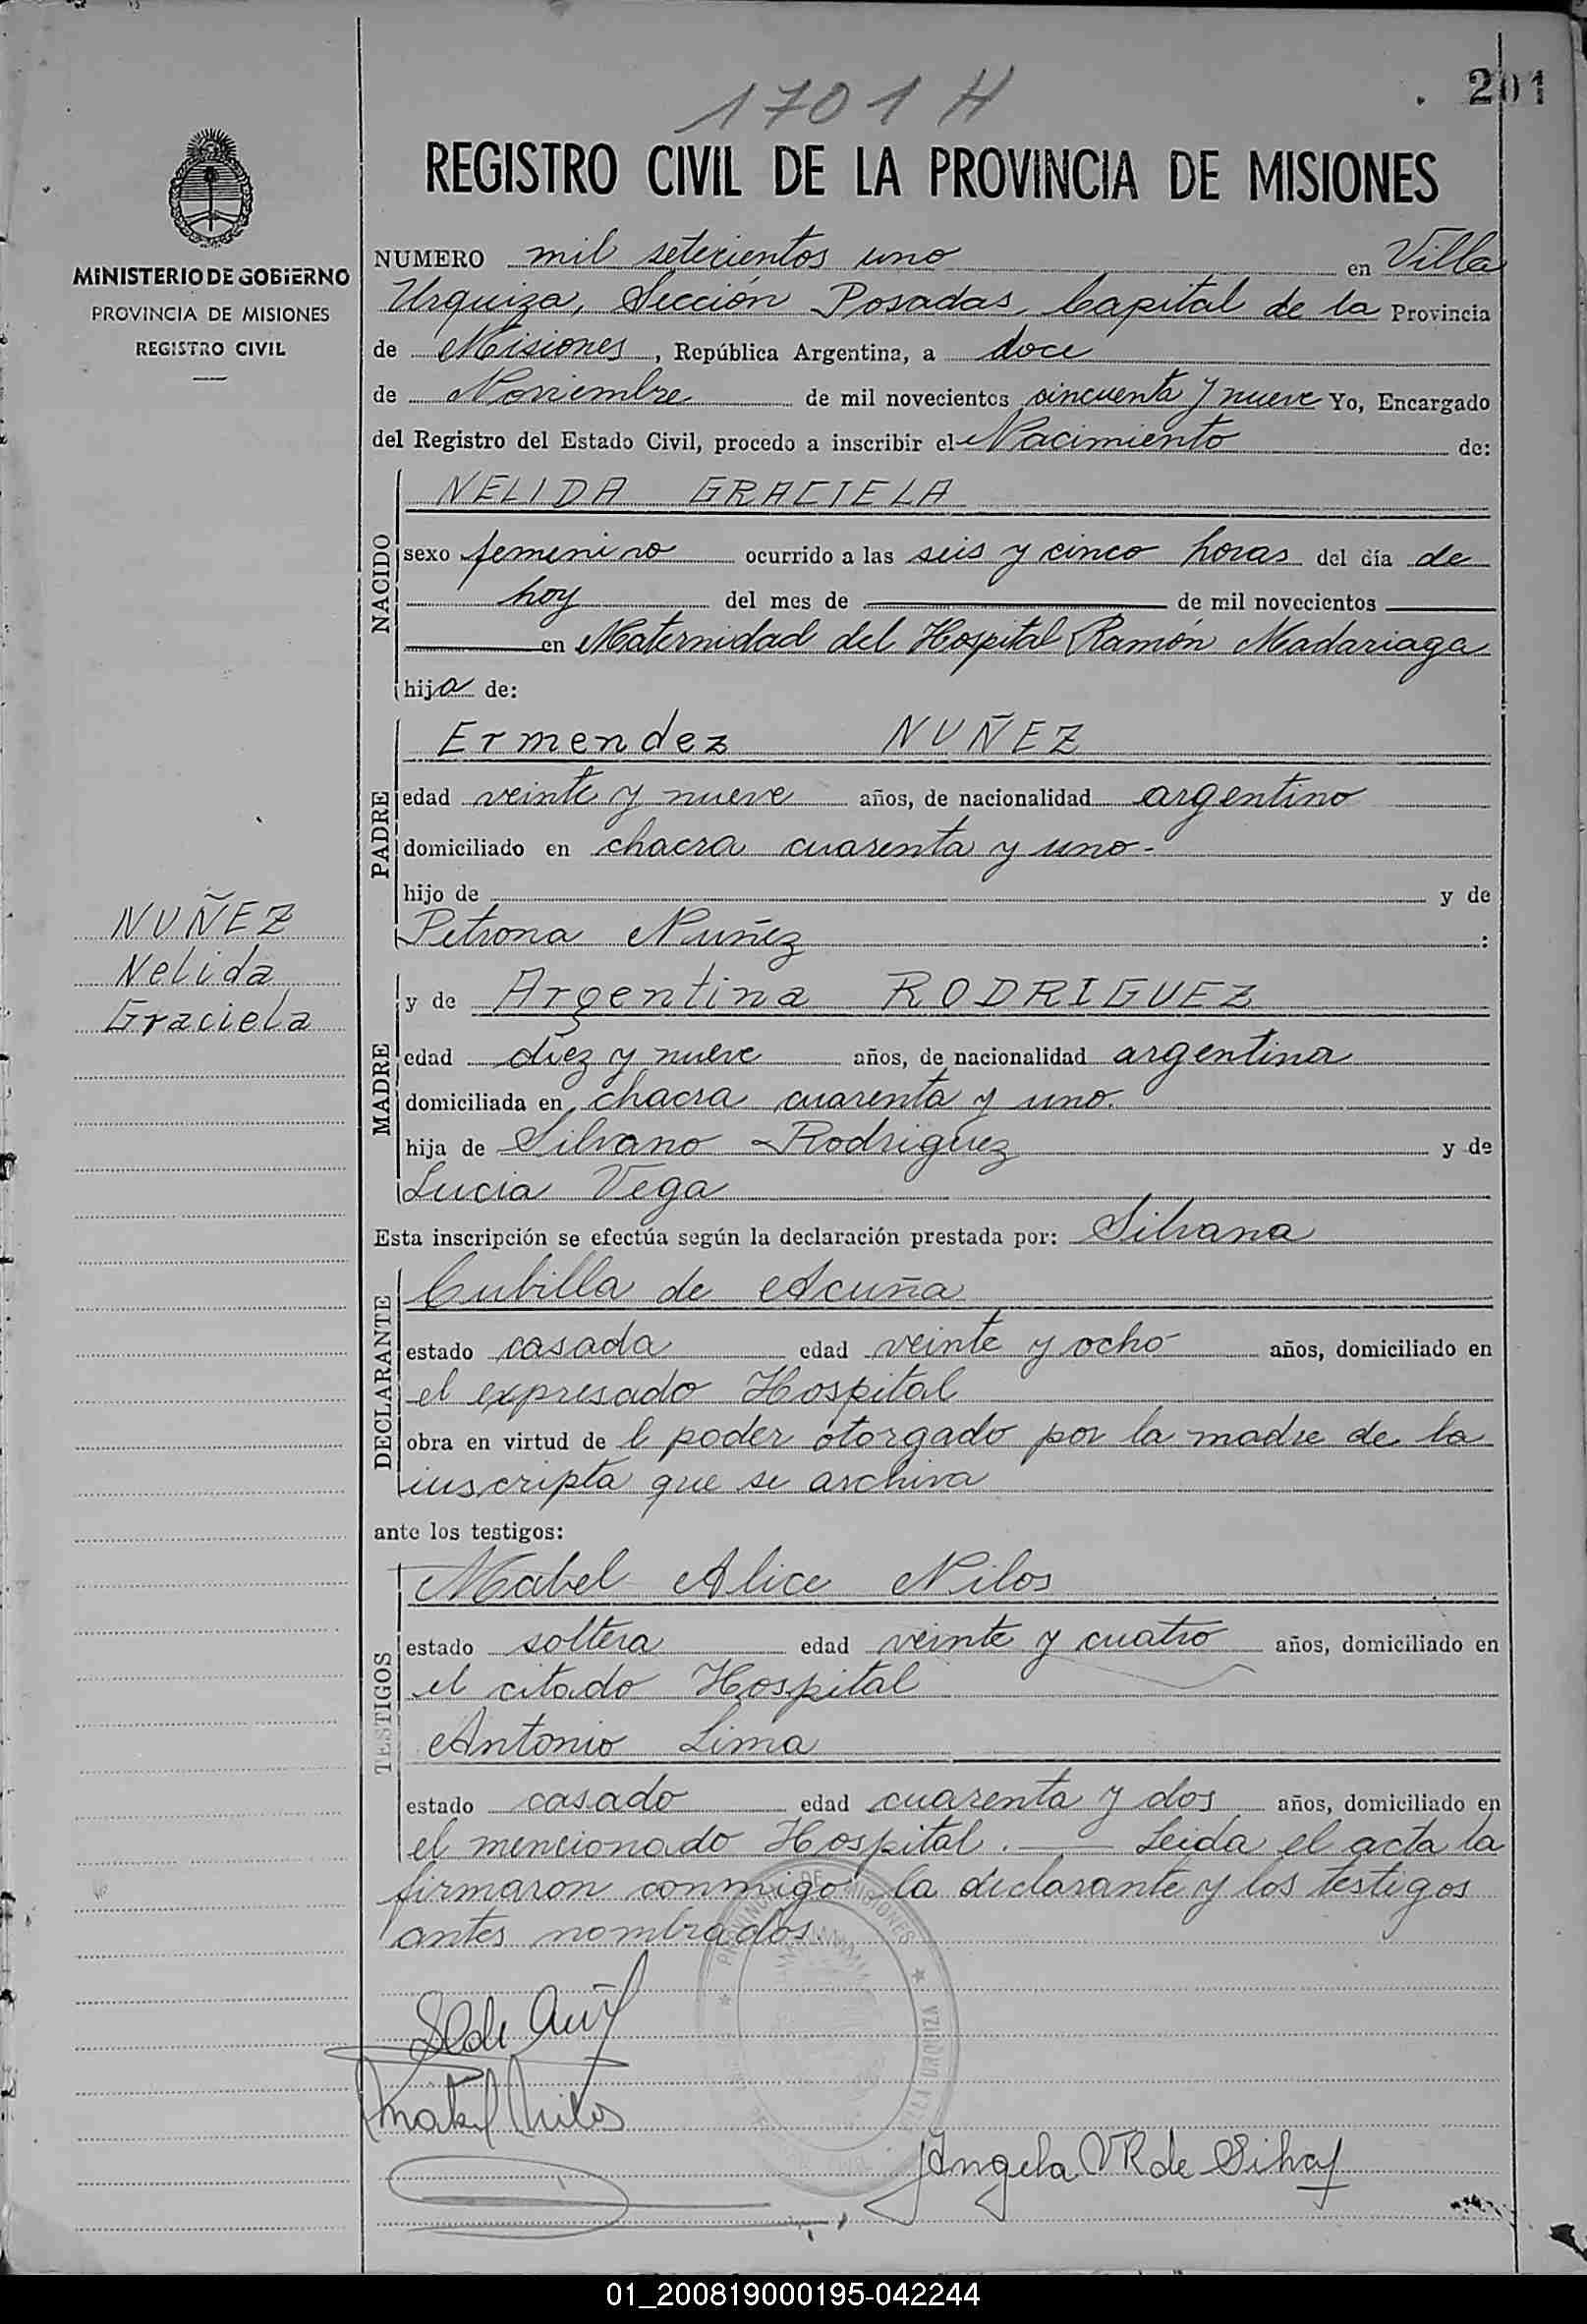 1701 H
201
REGISTRO CIVIL DE LA PROVINCIA DE MISIONES
MINISTERIO DE GOBIERNO
PROVINCIA DE MISIONES
REGISTRO CIVIL
NUMERO mil setecientos uno en Villa
Urquiza, Sección Posadas, Capital de la Provincia
de Misiones, República Argentina, a doce
de Noviembre de mil novecientos cincuenta y nueve Yo, Encargado
del Registro del Estado Civil, procedo a inscribir el Nacimiento de:
NACIDO
NELIDA GRACIELA
sexo femenino ocurrido a las seis y cinco horas del día de
hoy del mes de de mil novecientos
en Maternidad del Hospital Ramón Madariaga
hija de:
PADRE
Ermendez NUÑEZ
edad veinte y nueve años, de nacionalidad argentino
domiciliado en chacra cuarenta y uno-
hijo de y de
Petrona Nuñez :
NUÑEZ
Nelida
Graciela
MADRE
y de Argentina RODRIGUEZ
edad diez y nueve años, de nacionalidad argentina
domiciliada en chacra cuarenta y uno.
hija de Silvano Rodriguez y de
Lucia Vega
Esta inscripción se efectúa según la declaración prestada por: Silvana
DECLARANTE
Cubilla de Acuña
estado casada edad veinte y ocho años, domiciliado en
el expresado Hospital
obra en virtud de l poder otorgado por la madre de la
inscripta que se archiva
ante los testigos:
TESTIGOS
Mabel Alice Nilos
estado soltera edad veinte y cuatro años, domiciliado en
el citado Hospital
Antonio Lima
estado casado edad cuarenta y dos años, domiciliado en
el mencionado Hospital. Leida el acta la
firmaron conmigo la declarante y los testigos
antes nombrados
PROVINCIA DE MISIONES
VILLA URQUIZA
Mabel Nilos
Angela VR de
01_200819000195-042244